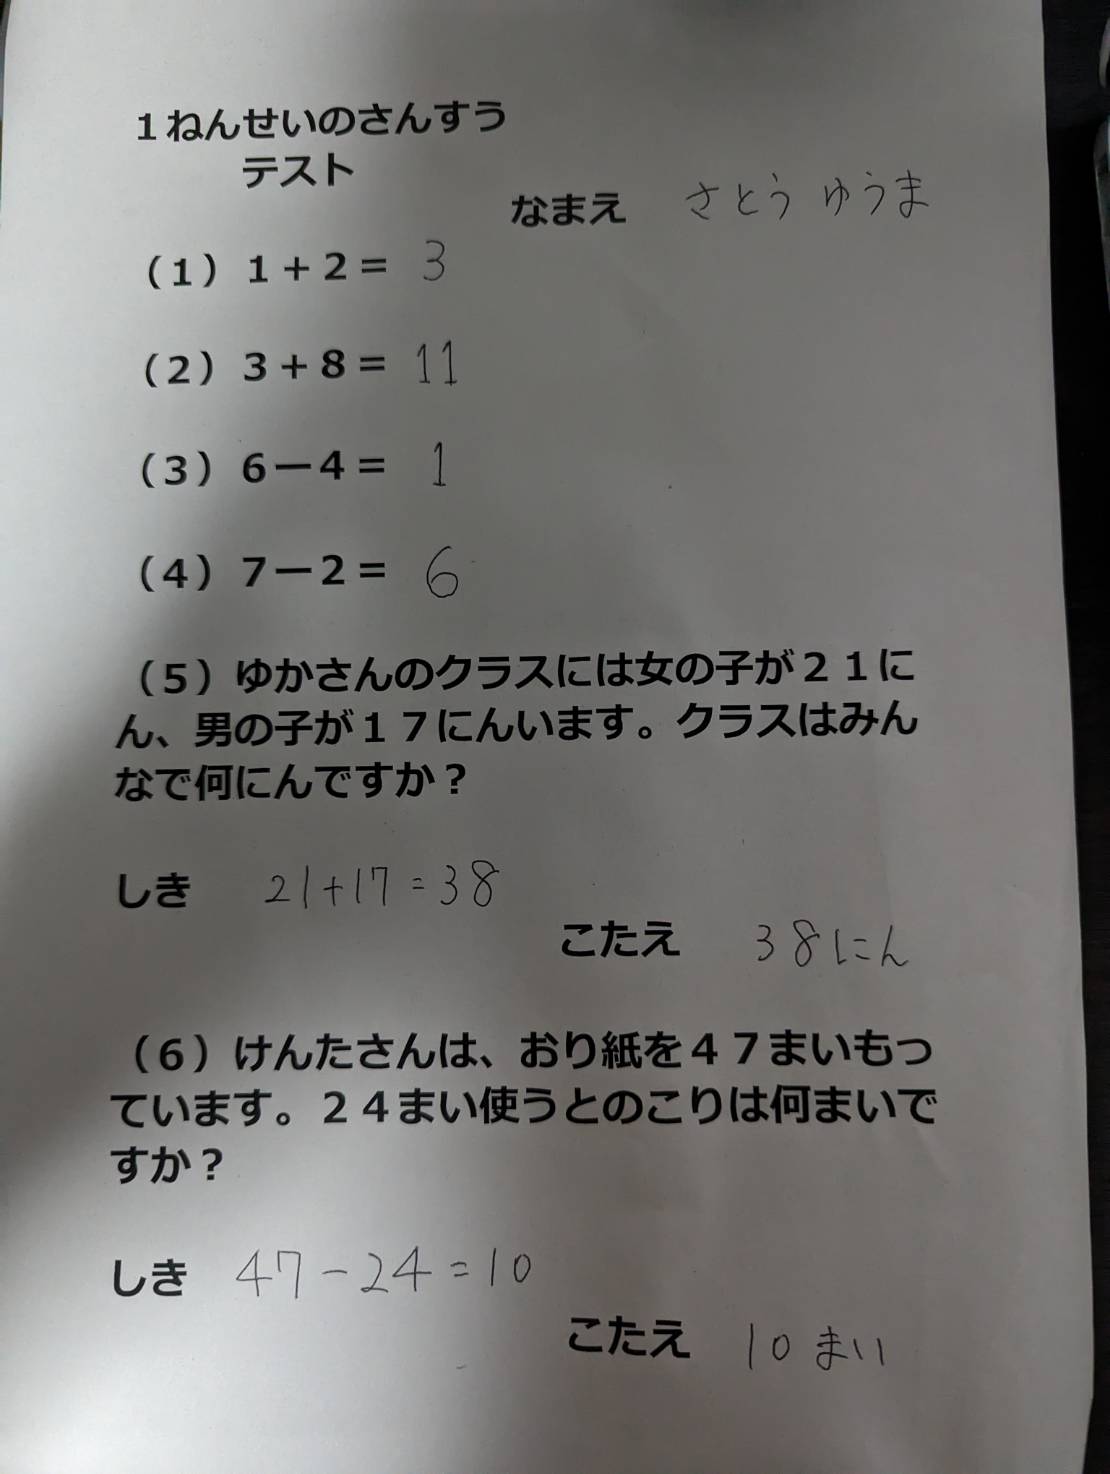 １ねんせいのさんすう
テスト
なまえ さとう ゆうま
（１）１＋２＝ 3
（２）３＋８＝ 11
（３）６－４＝ 1
（４）７－２＝ 6
（５）ゆかさんのクラスには女の子が２１に
ん、男の子が１７にんいます。クラスはみん
なで何にんですか？
しき 21+17=38
こたえ 38にん
（６）けんたさんは、おり紙を４７まいもっ
ています。２４まい使うとのこりは何まいで
すか？
しき 47-24=10
こたえ 10まい